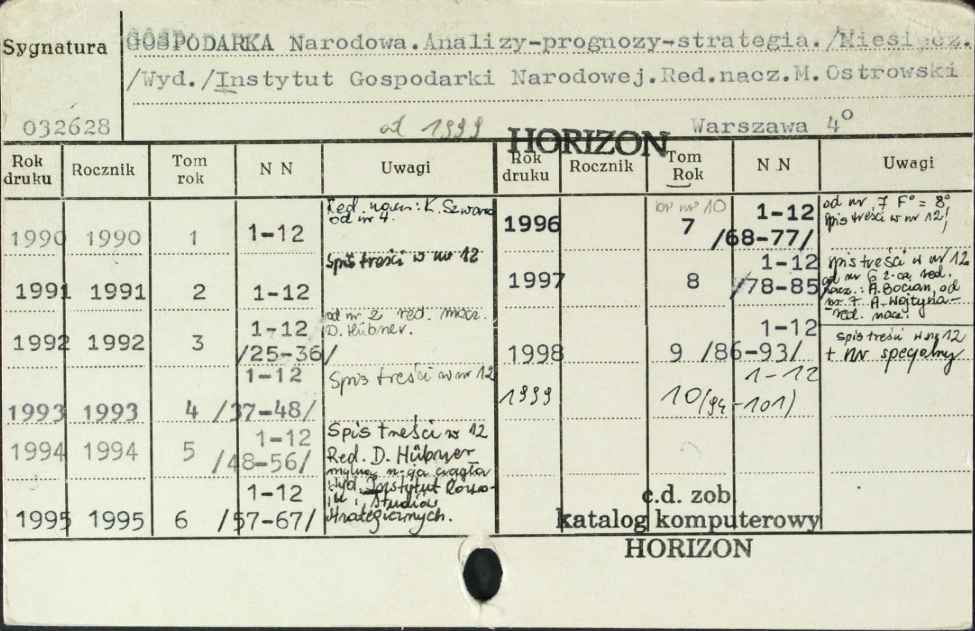 Sygnatura
GOSPODARKA Narodowa.Analizy-prognozy-strategia./Miesięcz.
/Wyd./Instytut Gospodarki Narodowej.Red.nacz.M.Ostrowski
032628
od 1999
HORIZON
Warszawa 4°
Rok druku Rocznik Tom rok N N Uwagi
Rok druku Rocznik Tom Rok N N Uwagi
1990 1990 1 1-12 od nr 4.
1991 1991 2 1-12 Spis treści w nr 12
1992 1992 3 1-12 /25-36/ od nr 2 red. nacz. D. Hübner.
1993 1993 4 1-12 /37-48/ Spis treści w nr 12
1994 1994 5 1-12 /48-56/ Spis treści w 12
Red. D. Hübner
1995 1995 6 1-12 /57-67/ Wyd. Instytut
Studiów
Strategicznych.
1996 7 1-12 /68-77/ od nr 7 F° = 8°
Spis treści w nr 12!
1997 8 1-12 /78-85/ spis treści w nr 12
od nr 6 z-ca red.
nacz.: A. Bocian, od
nr 7 A. Wojtyna-
red. nacz.
1998 9 1-12 /86-93/ spis treści w nr 12
+ nr specjalny
1999 10 1-12 /94-101/
c.d. zob
katalog komputerowy
HORIZON